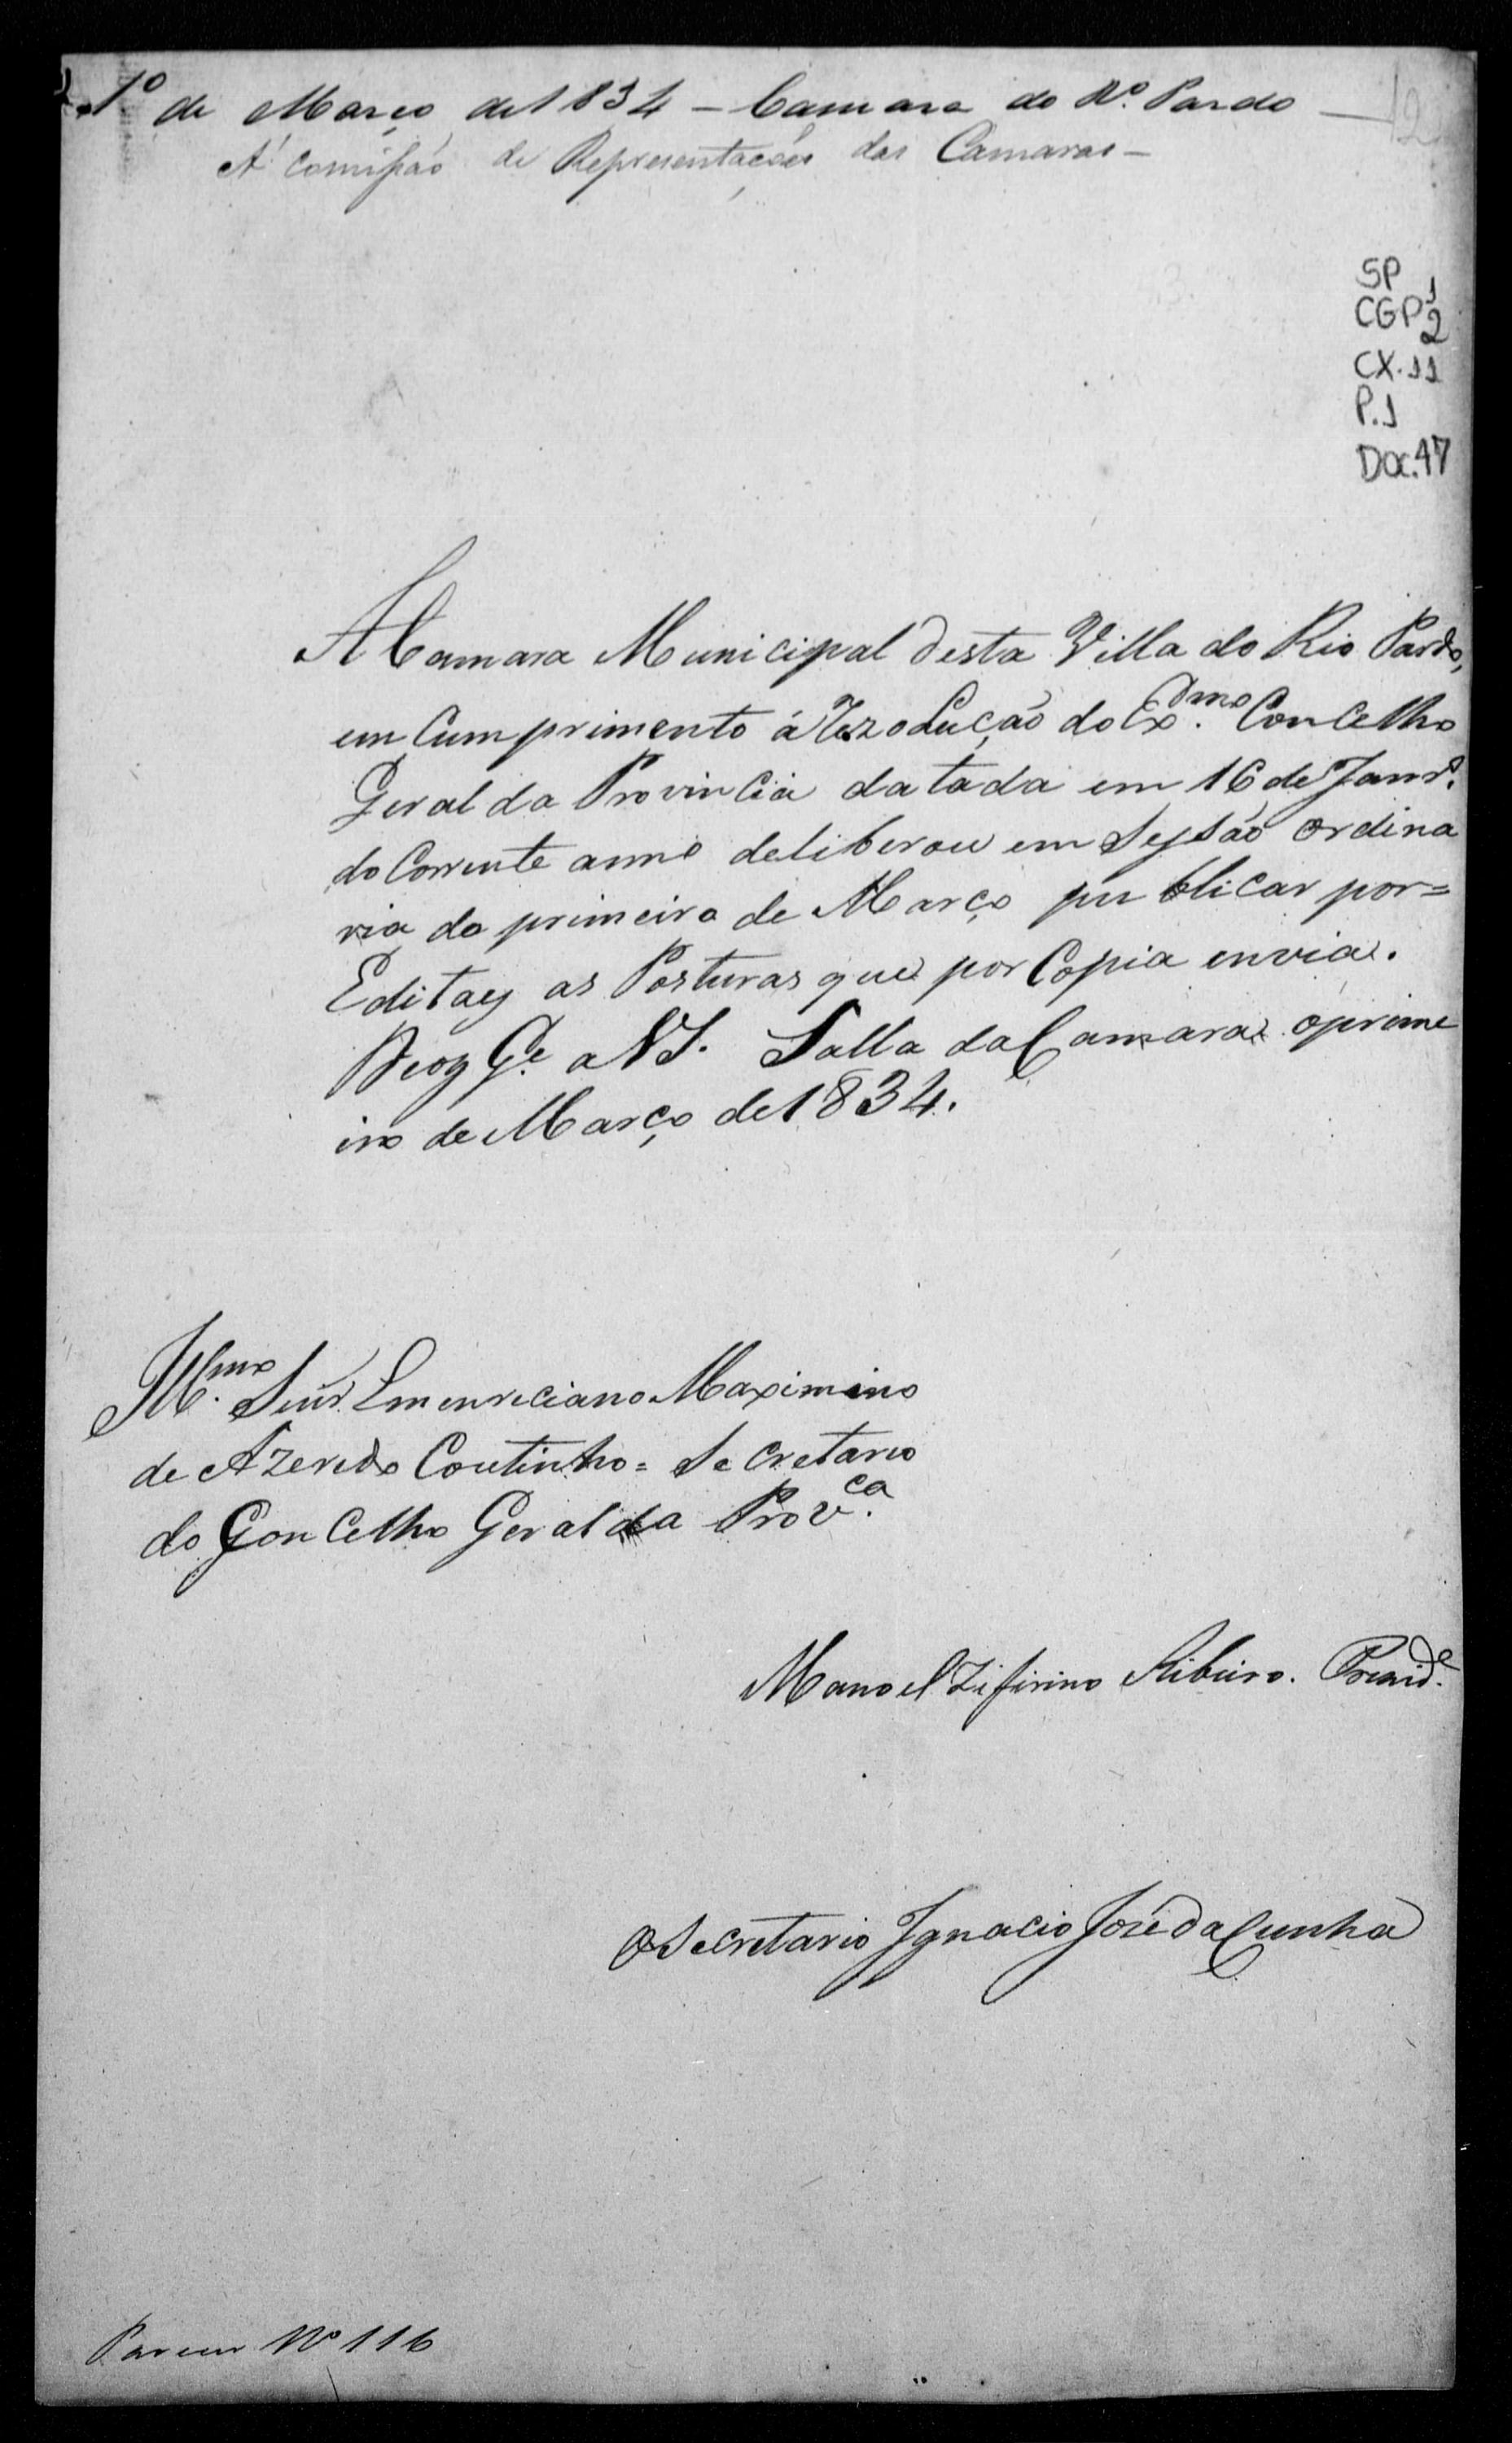 1º de Março de 1834 - Camara do Rº Pardo -
A' Comissão de Representaçoẽs das Camaras -
12
SP 1
CGP 2
CX. 11
P. 1
Doc. 47
A Camara Municipal desta Villa do Rio Pardo,
em Cumprimento á Rezolução do Exmo. Concelho
Geral da Provincia datada em 16 de Janrº.
do Corrente anno deliberou em Sessão ordina
ria do primeiro de Março publicar por=
Editaes as Posturas que por Copia envia.
Deos Ge. a VS. Salla da Camara o prime
iro de Março de 1834.
Illmo. Senr. Emenreciano Maximino
de Azeredo Coutinho = Secretario
do Concelho Geral da Provca.
Manoel Zifirino Ribeiro. Preside.
O Secretario Ignacio José da Cunha
Parecer Nº 116